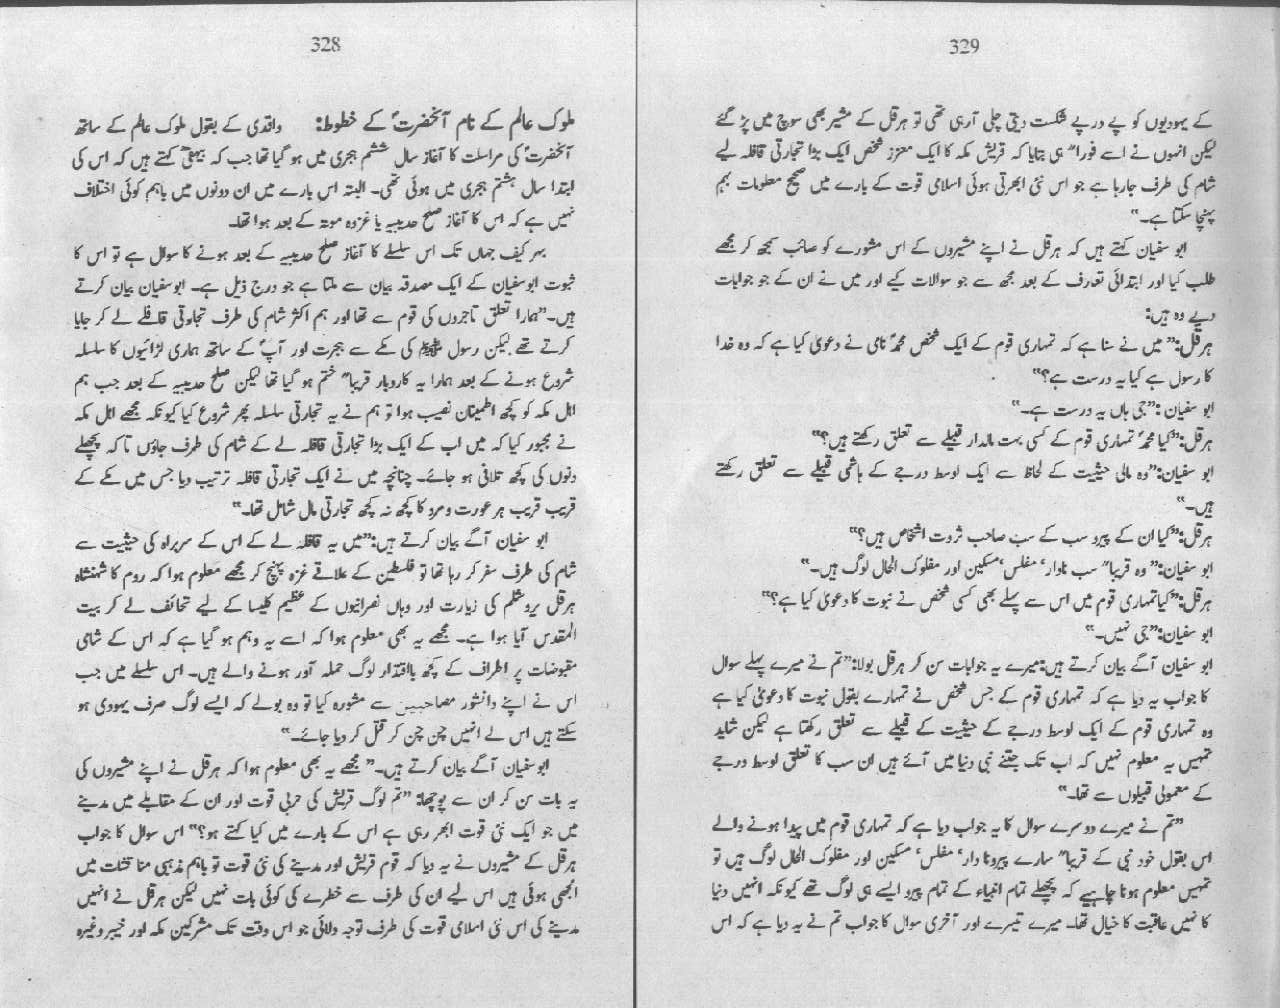 328
ملوک عالم کے نام آنحضرتؐ کے خطوط: واقدی کے بقول ملوک عالم کے ساتھ
آنحضرتؐ کی مراسلت کا آغاز سال ششم ہجری میں ہو گیا تھا جب کہ بیہقیؒ کہتے ہیں کہ اس کی
ابتدا سال ہشتم ہجری میں ہوئی تھی۔ البتہ اس بارے میں ان دونوں میں باہم کوئی اختلاف
نہیں ہے کہ اس کا آغاز صلح حدیبیہ یا غزوہ موتہ کے بعد ہوا تھا۔
بہر کیف جہاں تک اس سلسلے کا آغاز صلح حدیبیہ کے بعد ہونے کا سوال ہے تو اس کا
ثبوت ابوسفیان کے ایک مصدقہ بیان سے ملتا ہے جو درج ذیل ہے۔ ابوسفیان بیان کرتے
ہیں۔"ہمارا تعلق تاجروں کی قوم سے تھا اور ہم اکثر شام کی طرف تجاوتی قافلے لے کر جایا
کرتے تھے لیکن رسول ﷺ کی مکے سے ہجرت اور آپؐ کے ساتھ ہماری لڑائیوں کا سلسلہ
شروع ہونے کے بعد ہمارا یہ کاروبار قریبا" ختم ہو گیا تھا لیکن صلح حدیبیہ کے بعد جب ہم
اہل مکہ کو کچھ اطمینان نصیب ہوا تو ہم نے یہ تجارتی سلسلہ پھر شروع کیا کیونکہ مجھے اہل مکہ
نے مجبور کیا کہ میں اب کے ایک بڑا تجارتی قافلہ لے کے شام کی طرف جاؤں تاکہ پچھلے
دنوں کی کچھ تلافی ہو جائے۔ چنانچہ میں نے ایک تجارتی قافلہ ترتیب دیا جس میں مکے کے
قریب قریب ہر عورت و مرد کا کچھ نہ کچھ تجارتی مال شامل تھا۔"
ابو سفیان آگے بیان کرتے ہیں:"میں یہ قافلہ لے کے اس کے سربراہ کی حیثیت سے
شام کی طرف سفر کر رہا تھا تو فلسطین کے علاقے غزہ پہنچ کر مجھے معلوم ہوا کہ روم کا شہنشاہ
ہرقل یروشلم کی زیارت اور وہاں نصرانیوں کے عظیم کلیسا کے لیے تحائف لے کر بیت
المقدس آیا ہوا ہے۔ مجھے یہ بھی معلوم ہوا کہ اسے یہ وہم ہو گیا ہے کہ اس کے شامی
مقبوضات پر اطراف کے کچھ بااقتدار لوگ حملہ آور ہونے والے ہیں۔ اس سلسلے میں جب
اس نے اپنے دانشور مصاحبین سے مشورہ کیا تو وہ بولے کہ ایسے لوگ صرف یہودی ہو
سکتے ہیں اس لے انہیں چن چن کر قتل کر دیا جائے۔"
ابوسفیان آگے بیان کرتے ہیں۔" مجھے یہ بھی معلوم ہوا کہ ہرقل نے اپنے مشیروں کی
یہ بات سن کر ان سے پوچھا: "تم لوگ قریش کی حربی قوت اور ان کے مقابلے میں مدینے
میں جو ایک نئی قوت ابھر رہی ہے اس کے بارے میں کیا کہتے ہو؟" اس سوال کا جواب
ہرقل کے مشیروں نے یہ دیا کہ قوم قریش اور مدینے کی نئی قوت تو باہم مذہبی مناقشات میں
الجھی ہوئی ہیں اس لیے ان کی طرف سے خطرے کی کوئی بات نہیں لیکن ہرقل نے انہیں
مدینے کی اس نئی اسلامی قوت کی طرف توجہ دلائی جو اس وقت تک مشرکین مکہ اور خیبر وغیرہ
329
کے یہودیوں کو پے در پے شکست دیتی چلی آرہی تھی تو ہرقل کے مشیر بھی سوچ میں پڑ گئے
لیکن انہوں نے اسے فورا" ہی بتایا کہ قریش مکہ کا ایک معزز شخص ایک بڑا تجارتی قافلہ لیے
شام کی طرف جارہا ہے جو اس نئی ابھرتی ہوئی اسلامی قوت کے بارے میں صحیح معلومات بہم
پہنچا سکتا ہے۔"
ابو سفیان کہتے ہیں کہ ہرقل نے اپنے مشیروں کے اس مشورے کو صائب سمجھ کر مجھے
طلب کیا اور ابتدائی تعارف کے بعد مجھ سے جو سوالات کیے اور میں نے ان کے جو جوابات
دیے وہ ہیں:
ہرقل:" میں نے سنا ہے کہ تمہاری قوم کے ایک شخص محمدؐ نامی نے دعویٰ کیا ہے کہ وہ خدا
کا رسول ہے کیا یہ درست ہے؟"
ابو سفیان :"جی ہاں یہ درست ہے۔"
ہرقل:"کیا محمدؐ تمہاری قوم کے کسی بہت مالدار قبیلے سے تعلق رکھتے ہیں؟"
ابو سفیان:"وہ مالی حیثیت کے لحاظ سے ایک اوسط درجے کے ہاشمی قبیلے سے تعلق رکھتے
ہیں۔"
ہرقل:"کیا ان کے پیرو سب کے سب صاحب ثروت اشخاص ہیں؟"
ابو سفیان:" وہ قریبا" سب نادار' مفلس' مسکین اور مفلوک الحال لوگ ہیں۔"
ہرقل:"کیا تمہاری قوم میں اس سے پہلے بھی کسی شخص نے نبوت کا دعویٰ کیا ہے؟"
ابو سفیان:"جی نہیں۔"
ابو سفیان آگے بیان کرتے ہیں:میرے یہ جوابات سن کر ہرقل بولا:"تم نے میرے پہلے سوال
کا جواب یہ دیا ہے کہ تمہاری قوم کے جس شخص نے تمہارے بقول نبوت کا دعویٰ کیا ہے
وہ تمہاری قوم کے ایک اوسط درجے کے حیثیت کے قبیلے سے تعلق رکھتا ہے لیکن شاید
تمہیں یہ معلوم نہیں کہ اب تک جتنے نبی دنیا میں آئے ہیں ان سب کا تعلق اوسط درجے
کے معمولی قبیلوں سے تھا۔"
"تم نے میرے دوسرے سوال کا یہ جواب دیا ہے کہ تمہاری قوم میں پیدا ہونے والے
اس بقول خود نبی کے قریبا" سارے پیرو نادار' مفلس' مسکین اور مفلوک الحال لوگ ہیں تو
تمہیں معلوم ہونا چاہیے کہ پچھلے تمام انبیاء کے تمام پیرو ایسے ہی لوگ تھے کیونکہ انہیں دنیا
کا نہیں عاقبت کا خیال تھا۔ میرے تیسرے اور آخری سوال کا جواب تم نے یہ دیا ہے کہ اس